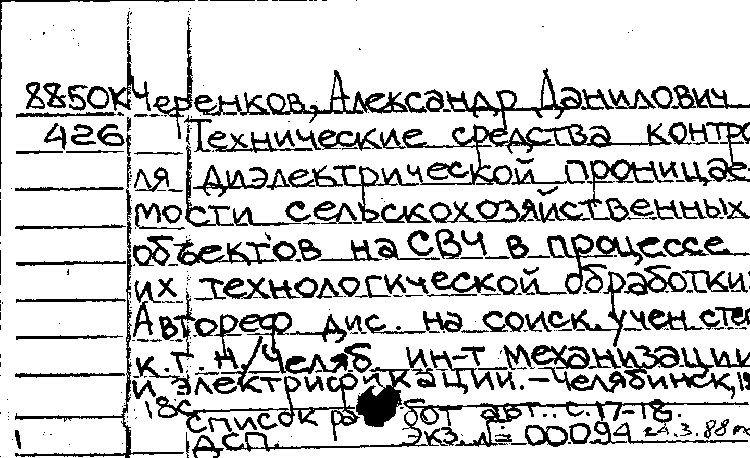 8850К Черенков, Александр Данилович
426 Технические средства контро
ля диэлектрической проницае
мости сельскохозяйственных
объектов на СВЧ в процессе
их технологической обработки:
Автореф дис. на соиск. учен сте
к.т.н/Челяб ин-т механизации
и электрификации.-Челябинск, 19
18с
список работ авт.: с.17-18.
ДСП. экз. №= 00094 24.3.88
1